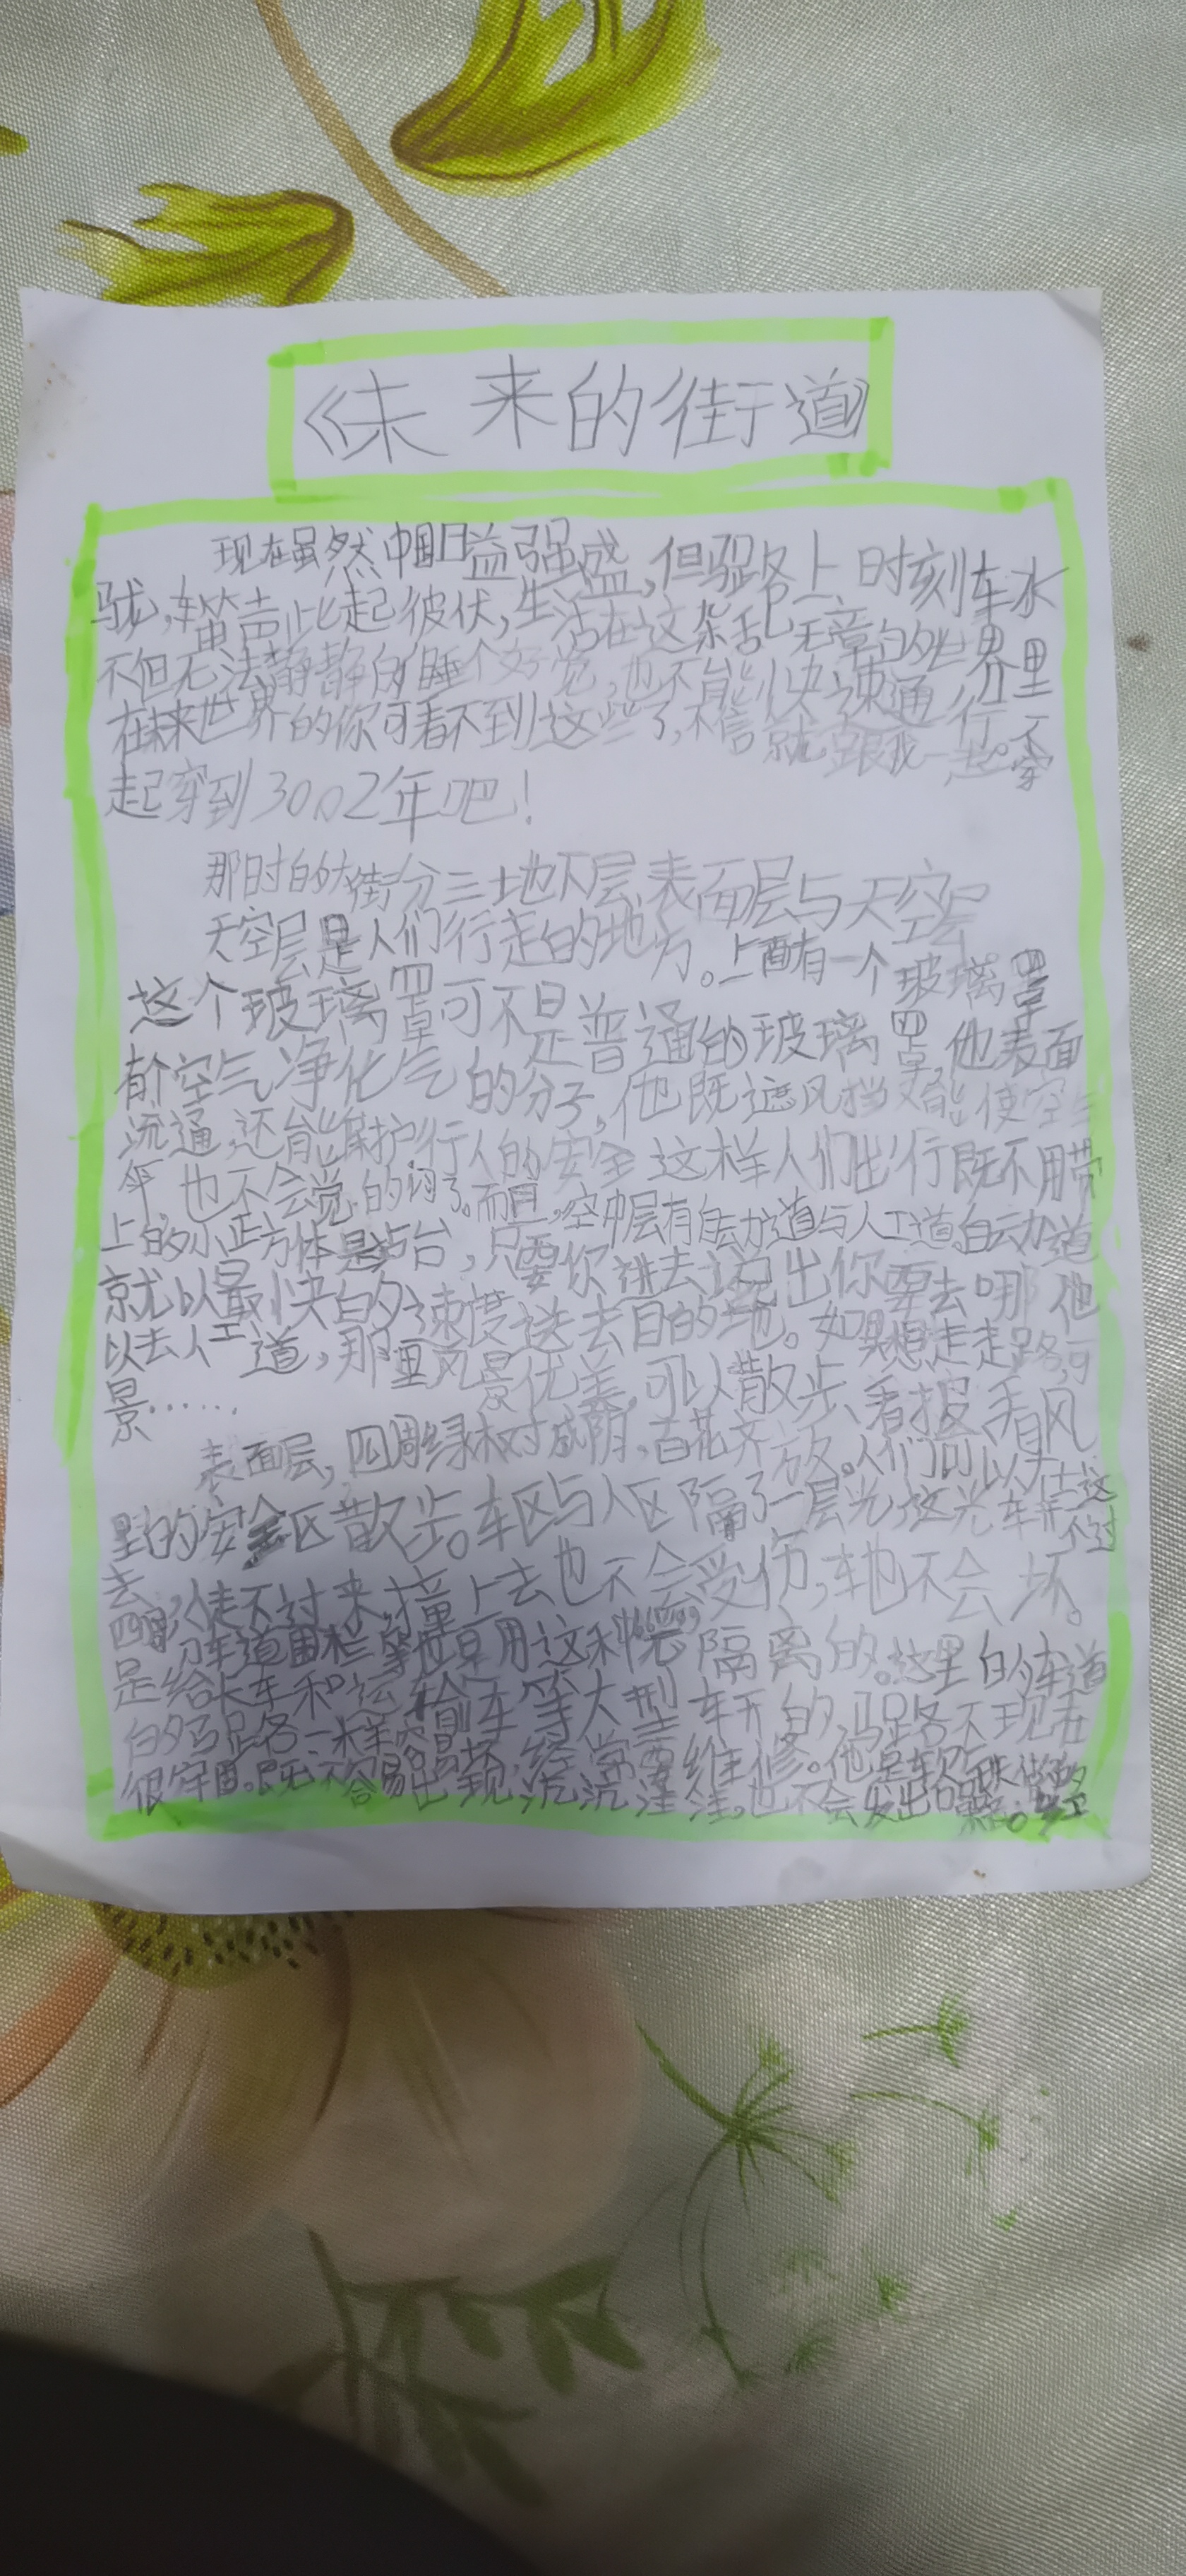 《未来的街道》
现在虽然中国日益强盛,但马路上时刻车水
马龙,车笛声此起彼伏,生活在这杂乱无章的世界里
不但无法静静的睡个好觉,也不能快速通行。不
在未来世界的你可看不到这些了,不信就跟我一起穿
起穿到3002年吧!
那时的大街分三地下层表面层与天空层
天空层是人们行走的地方。上面有一个玻璃罩
这个玻璃罩可不是普通的玻璃罩,他表面
有个空气净化气的分子,他既遮风挡又能使空气
流通,还能保护行人的安全这样人们出行既不用带
伞,也不会觉的闷了。而且,空中层有自动道与人工道,自动道
上的小正方体是站台,只要你进去说出你要去哪他
就以最快的速度送去目的地。如果想走走路可
以去人工道,那里风景优美,可以散步、看报、看风
景……
表面层,四周绿树成阴,百花齐放。人们可以去这
里的安全区散步。车区与人区隔了一层光,这光车开不过
去,人徒不过来,撞上去也不会受伤,车也不会坏。
车道围栏等也是用这种隔离的。这里的车道
是给卡车和运输车等大型车开的,马路不现在
的马路一样容易坏,经常要维修。他是软
很牢固。不会易出现沉沉洼洼。也不会发出噪音。